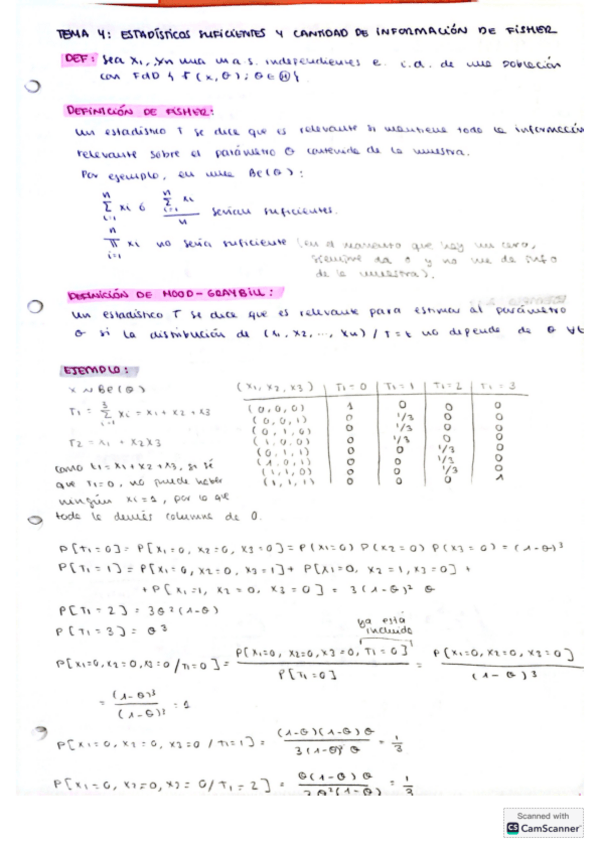 TEMA 4: ESTADÍSTICOS SUFICIENTES Y CANTIDAD DE INFORMACIÓN DE FISHER
DEF: Sea x₁, xₙ una m.a.s. independientes e i.d. de una población
con FdD { f(x, θ); θ∈Θ}.
DEFINICIÓN DE FISHER:
Un estadístico T se dice que es relevante si mantiene toda la información
relevante sobre el parámetro θ contenida de la muestra.
Por ejemplo, en una Be(θ):
n Σ i=1 xi ó n Σ i=1 xi / n serían suficientes.
n π i=1 xi no sería suficiente (en el momento que hay un cero,
siempre da 0 y no me da info
de la muestra).
DEFINICIÓN DE MOOD-GRAYBILL:
Un estadístico T se dice que es relevante para estimar al parámetro
θ si la distribución de (x₁, x₂, ..., xₙ) / T=t no depende de θ ∀t
EJEMPLO:
X ~ Be(θ)
T₁ = 3 Σ i=1 xi = x₁ + x₂ + x₃
T₂ = x₁ + x₂x₃
como t₁ = x₁ + x₂ + x₃, si sé
que T₁=0, no puede haber
ningún xi=1, por lo que
toda la demás columna da 0.
(x₁, x₂, x₃) | T₁=0 | T₁=1 | T₁=2 | T₁=3
(0,0,0) 1 0 0 0
(0,0,1) 0 1/3 0 0
(0,1,0) 0 1/3 0 0
(1,0,0) 0 1/3 0 0
(0,1,1) 0 0 1/3 0
(1,0,1) 0 0 1/3 0
(1,1,0) 0 0 1/3 0
(1,1,1) 0 0 0 1
P[T₁=0] = P[X₁=0, X₂=0, X₃=0] = P(X₁=0) P(X₂=0) P(X₃=0) = (1-θ)³
P[T₁=1] = P[X₁=0, X₂=0, X₃=1] + P[X₁=0, X₂=1, X₃=0] +
+ P[X₁=1, X₂=0, X₃=0] = 3(1-θ)² θ
P[T₁=2] = 3θ²(1-θ)
P[T₁=3] = θ³
ya está
incluido
P[X₁=0, X₂=0, X₃=0 / T₁=0] = P[X₁=0, X₂=0, X₃=0, T₁=0] / P[T₁=0] = P[X₁=0, X₂=0, X₃=0] / (1-θ)³
= (1-θ)³ / (1-θ)³ = 1
P[X₁=0, X₂=0, X₃=0 / T₁=1] = (1-θ)(1-θ)θ / 3(1-θ)²θ = 1/3
P[X₁=0, X₂=0, X₃=0/T₁=2] = θ(1-θ)θ / 3θ²(1-θ) = 1/3
Scanned with
CS CamScanner